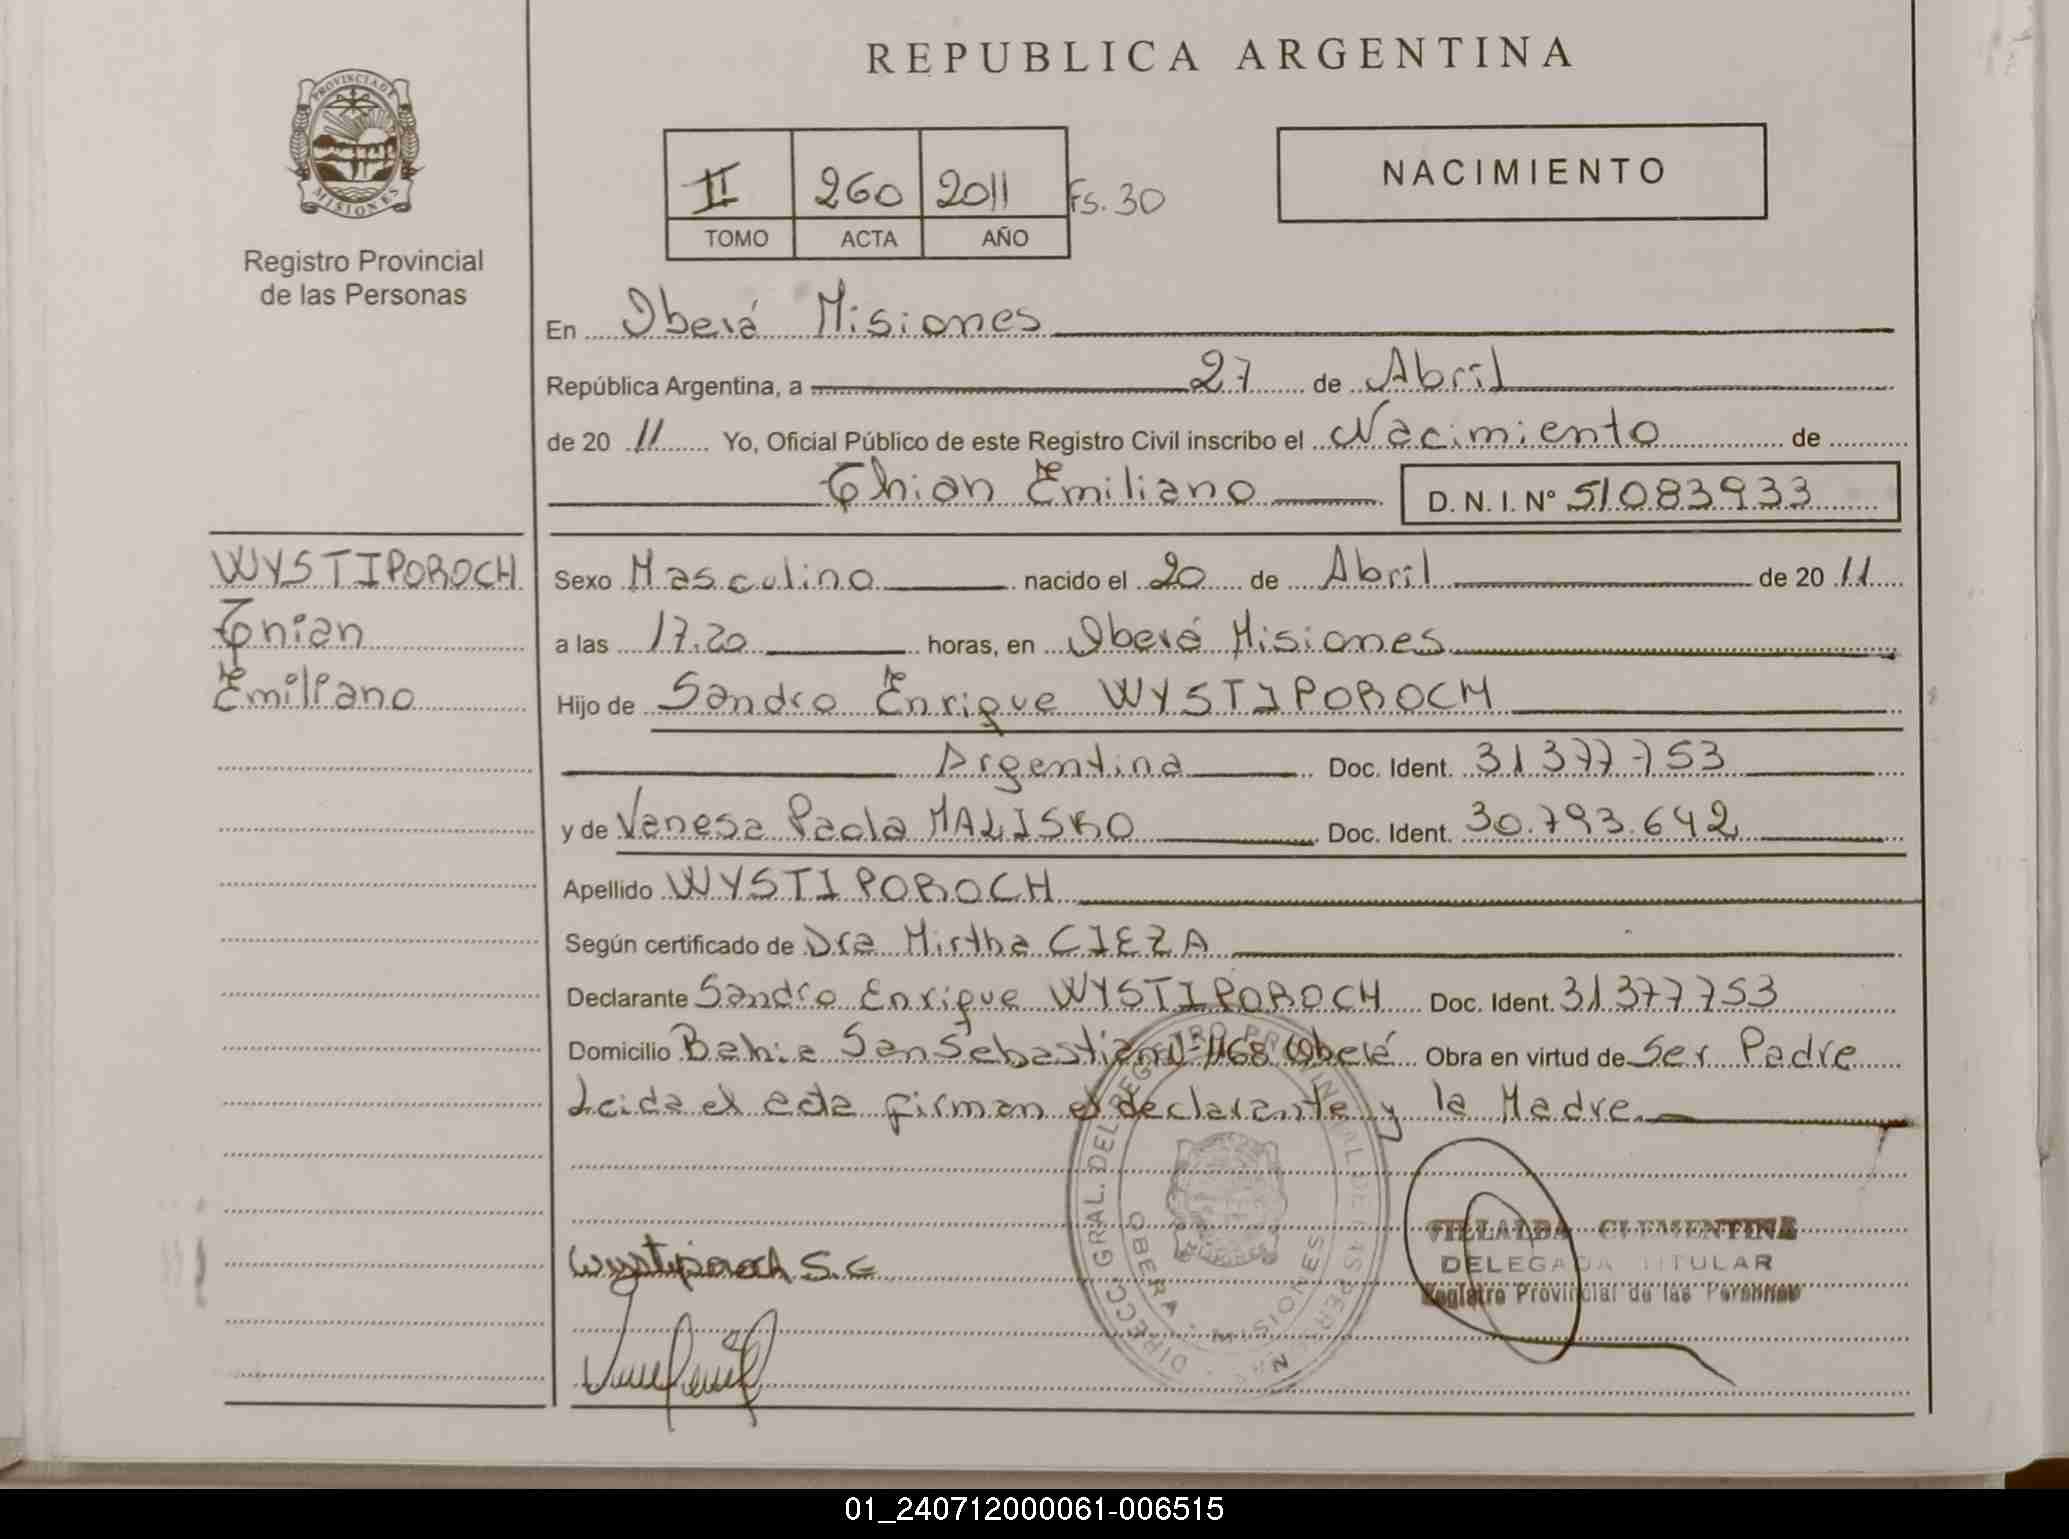 REPUBLICA ARGENTINA
PROVINCIA DE MISIONES
Registro Provincial
de las Personas
II 260 2011 Fs. 30
TOMO ACTA AÑO
NACIMIENTO
En Oberá Misiones
República Argentina, a 27 de Abril
de 2011 Yo, Oficial Público de este Registro Civil inscribo el Nacimiento de
Thian Emiliano D. N. I. Nº 51083933
WYSTIPOROCH
Thian
Emiliano
Sexo Masculino nacido el 20 de Abril de 2011
a las 17.20 horas, en Oberá Misiones
Hijo de Sandro Enrique WYSTIPOROCH
Argentina Doc. Ident. 31377753
y de Vanesa Paola MALISKO Doc. Ident. 30.793.642
Apellido WYSTIPOROCH
Según certificado de Dra Mirtha CIEZA
Declarante Sandro Enrique WYSTIPOROCH Doc. Ident. 31377753
Domicilio Bahia San Sebastian Nº 1168 Oberá Obra en virtud de Ser Padre
Leida el acta firman el declarante y la Madre
DIRECC. GRAL. DEL REGISTRO PROVINCIAL DE LAS PERSONAS
OBERA - MISIONES
Wystiporoch S.E
VILLALBA CLEMENTINA
DELEGADA TITULAR
Registro Provincial de las Personas
01_240712000061-006515